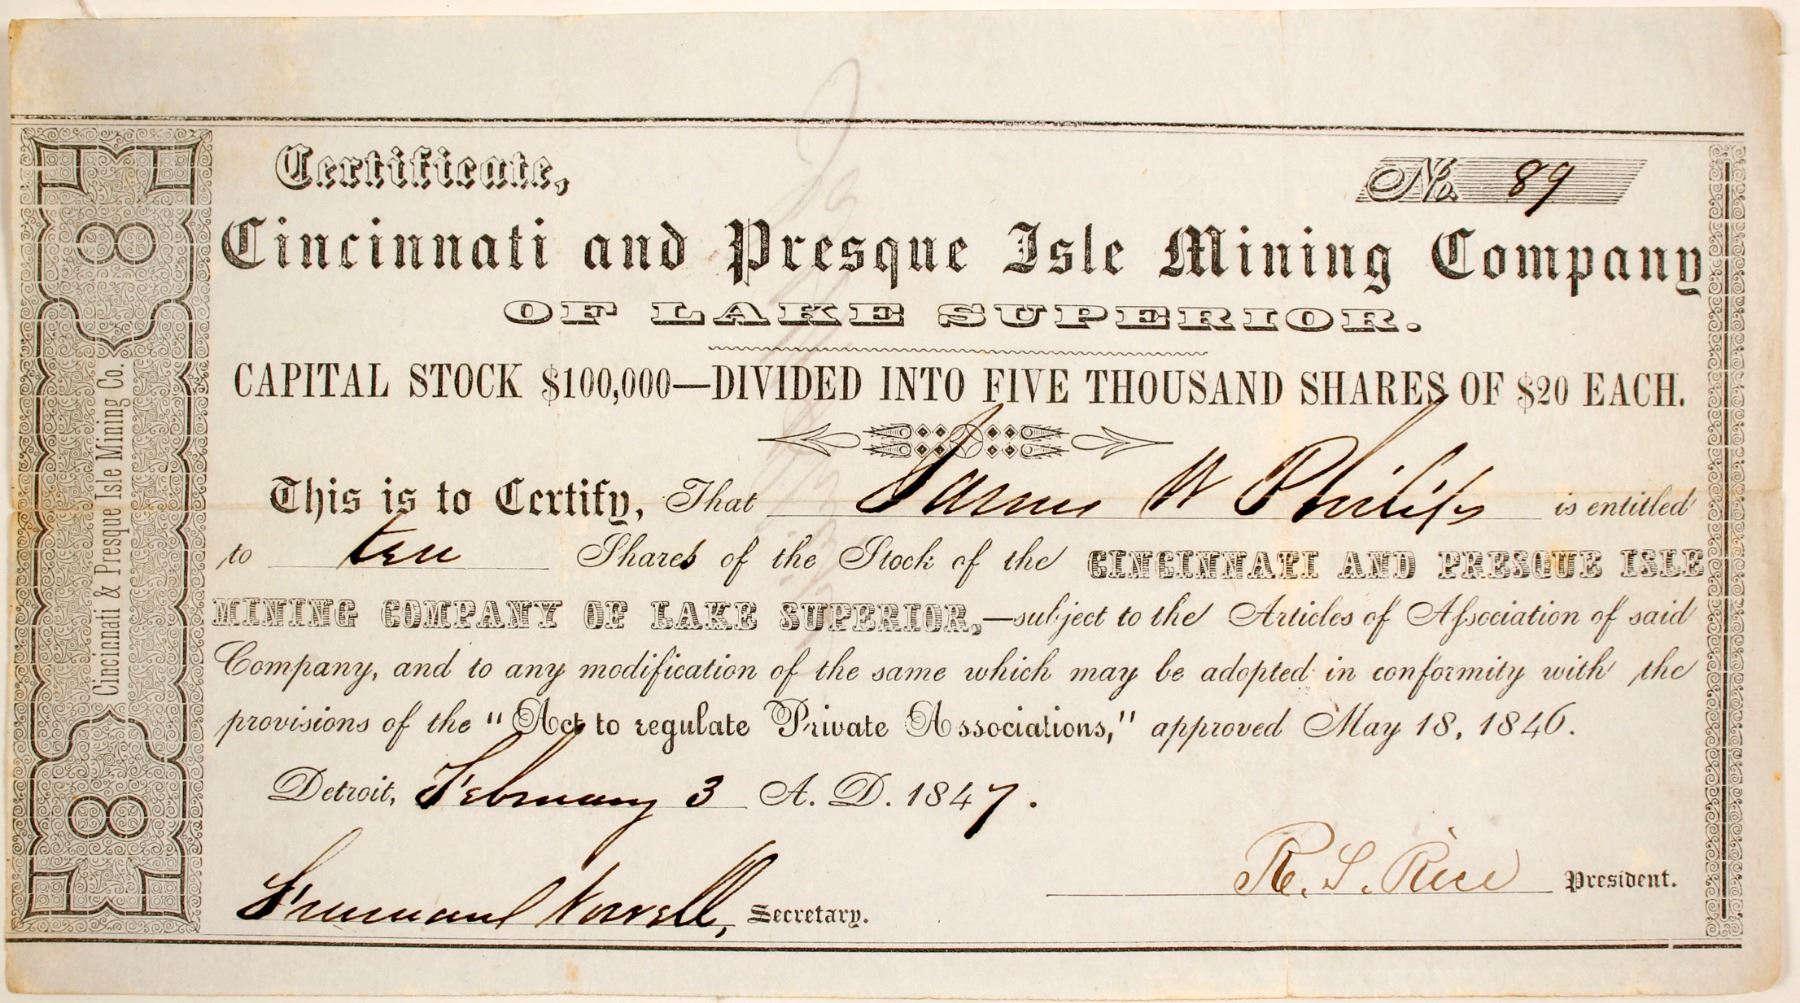 Certificate,
No. 89
Cincinnati and Presque Isle Mining Company
OF LAKE SUPERIOR.
CAPITAL STOCK $100,000—DIVIDED INTO FIVE THOUSAND SHARES OF $20 EACH.
This is to Certify, That James W Philips is entitled
to ten Shares of the Stock of the CINCINNATI AND PRESQUE ISLE
MINING COMPANY OF LAKE SUPERIOR,—subject to the Articles of Association of said
Company, and to any modification of the same which may be adopted in conformity with the
provisions of the "Act to regulate Private Associations," approved May 18, 1846.
Detroit, February 3 A. D. 1847.
R. S. Rice President.
Freeman Norvell, Secretary.
Cincinnati & Presque Isle Mining Co.